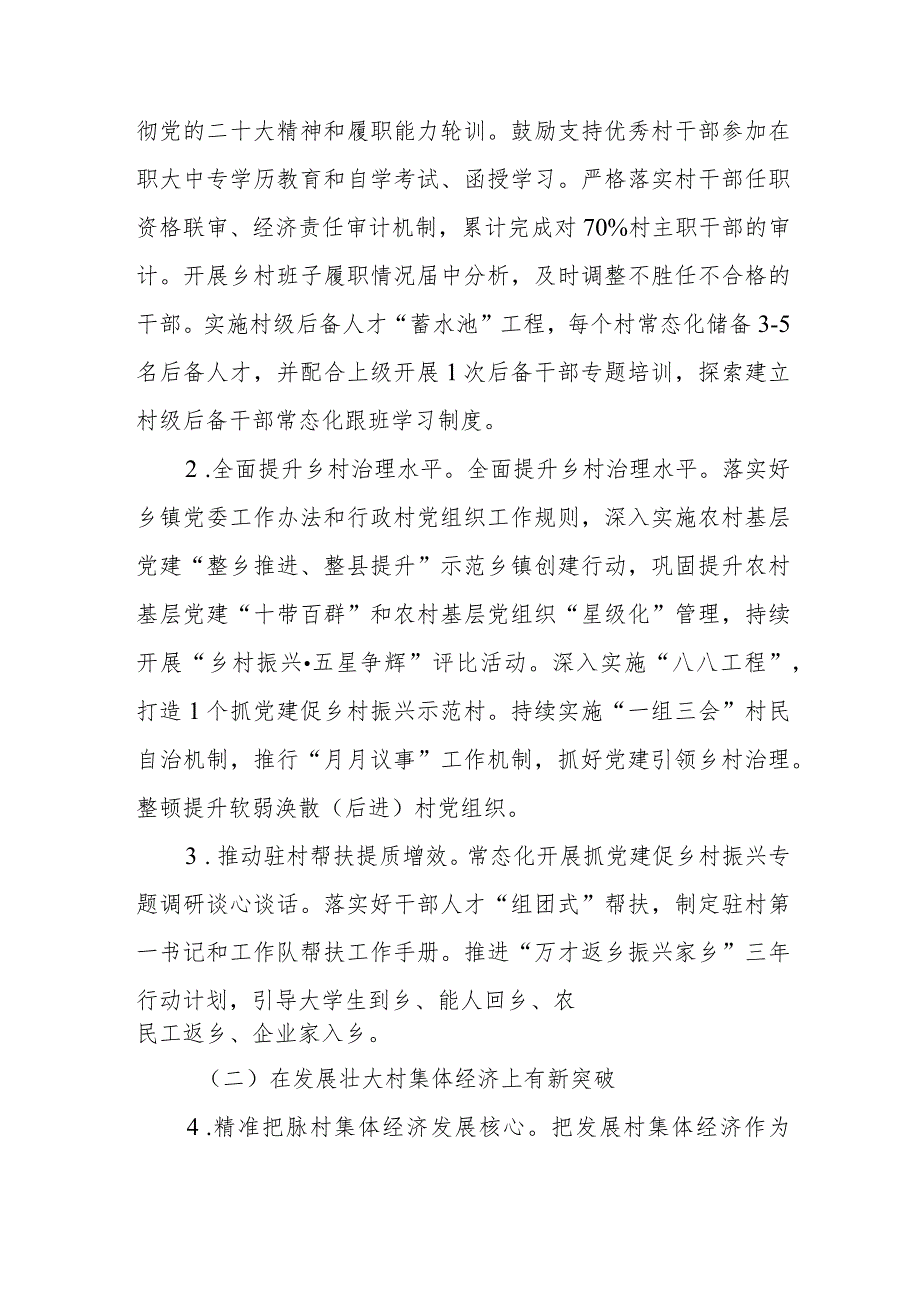 彻党的二十大精神和履职能力轮训。鼓励支持优秀村干部参加在
职大中专学历教育和自学考试、函授学习。严格落实村干部任职
资格联审、经济责任审计机制，累计完成对 70%村主职干部的审
计。开展乡村班子履职情况届中分析，及时调整不胜任不合格的
干部。实施村级后备人才“蓄水池”工程，每个村常态化储备 3-5
名后备人才，并配合上级开展 1 次后备干部专题培训，探索建立
村级后备干部常态化跟班学习制度。
2 .全面提升乡村治理水平。全面提升乡村治理水平。落实好
乡镇党委工作办法和行政村党组织工作规则，深入实施农村基层
党建“整乡推进、整县提升”示范乡镇创建行动，巩固提升农村
基层党建“十带百群”和农村基层党组织“星级化”管理，持续
开展“乡村振兴•五星争辉”评比活动。深入实施“八八工程”，
打造 1 个抓党建促乡村振兴示范村。持续实施“一组三会”村民
自治机制，推行“月月议事”工作机制，抓好党建引领乡村治理。
整顿提升软弱涣散（后进）村党组织。
3 .推动驻村帮扶提质增效。常态化开展抓党建促乡村振兴专
题调研谈心谈话。落实好干部人才“组团式”帮扶，制定驻村第
一书记和工作队帮扶工作手册。推进“万才返乡振兴家乡”三年
行动计划，引导大学生到乡、能人回乡、农
民工返乡、企业家入乡。
（二）在发展壮大村集体经济上有新突破
4 .精准把脉村集体经济发展核心。把发展村集体经济作为